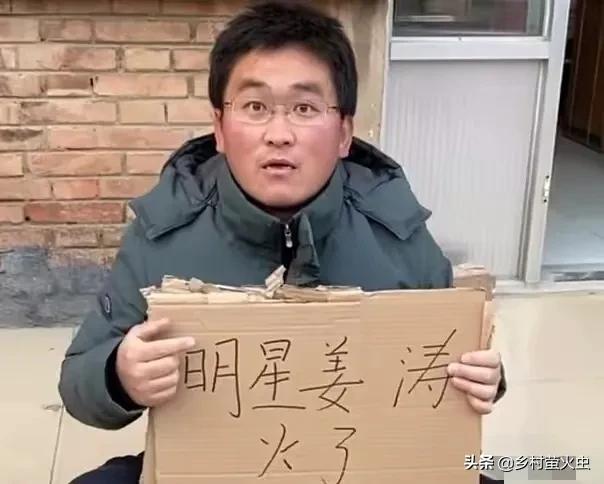 明星姜涛
火了
头条 @乡村萤火虫